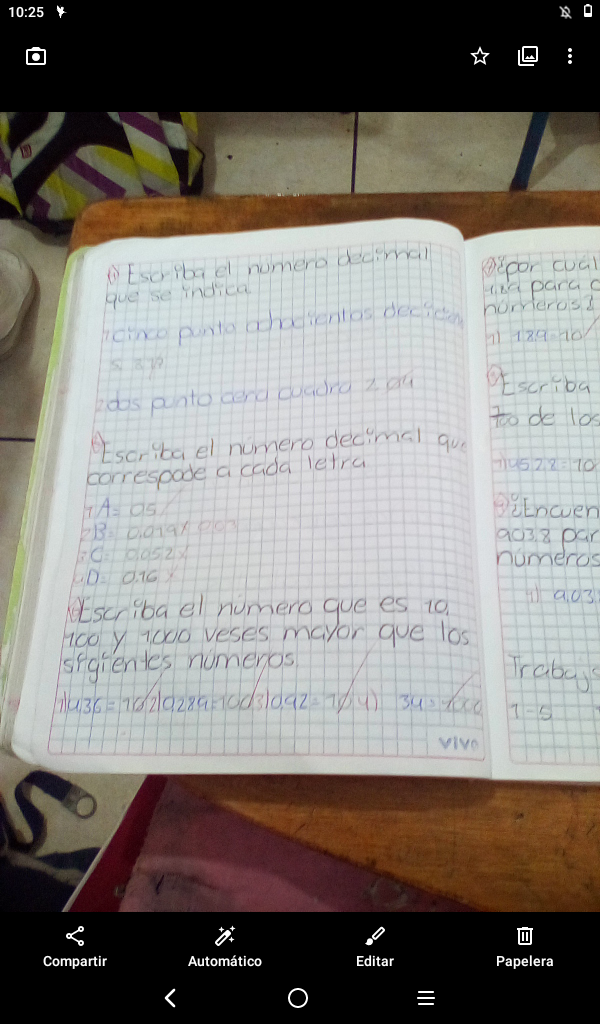 10:25
① Escriba el número decimal
que se indica
1 cinco punto
2 dos punto cero cuadro 2.04
Escriba el número decimal que
correspode a cada letra
1 A= 05
2 B= 0.019
C= 0.052
D= 0.16
Escriba el número que es 10,
100 y 1000 veses mayor que los
sigientes números
1) 4.36 = 10 2) 0.289 = 100 3) 0.92 = 10 4) 34 = 1000
vivo
¿por cuál
para
números?
1) 189 10
Escriba
de los
1) 4528 = 10
¿Encuen
903.8 par
números
1) 9.03
Trabajo
1-5
Compartir
Automático
Editar
Papelera